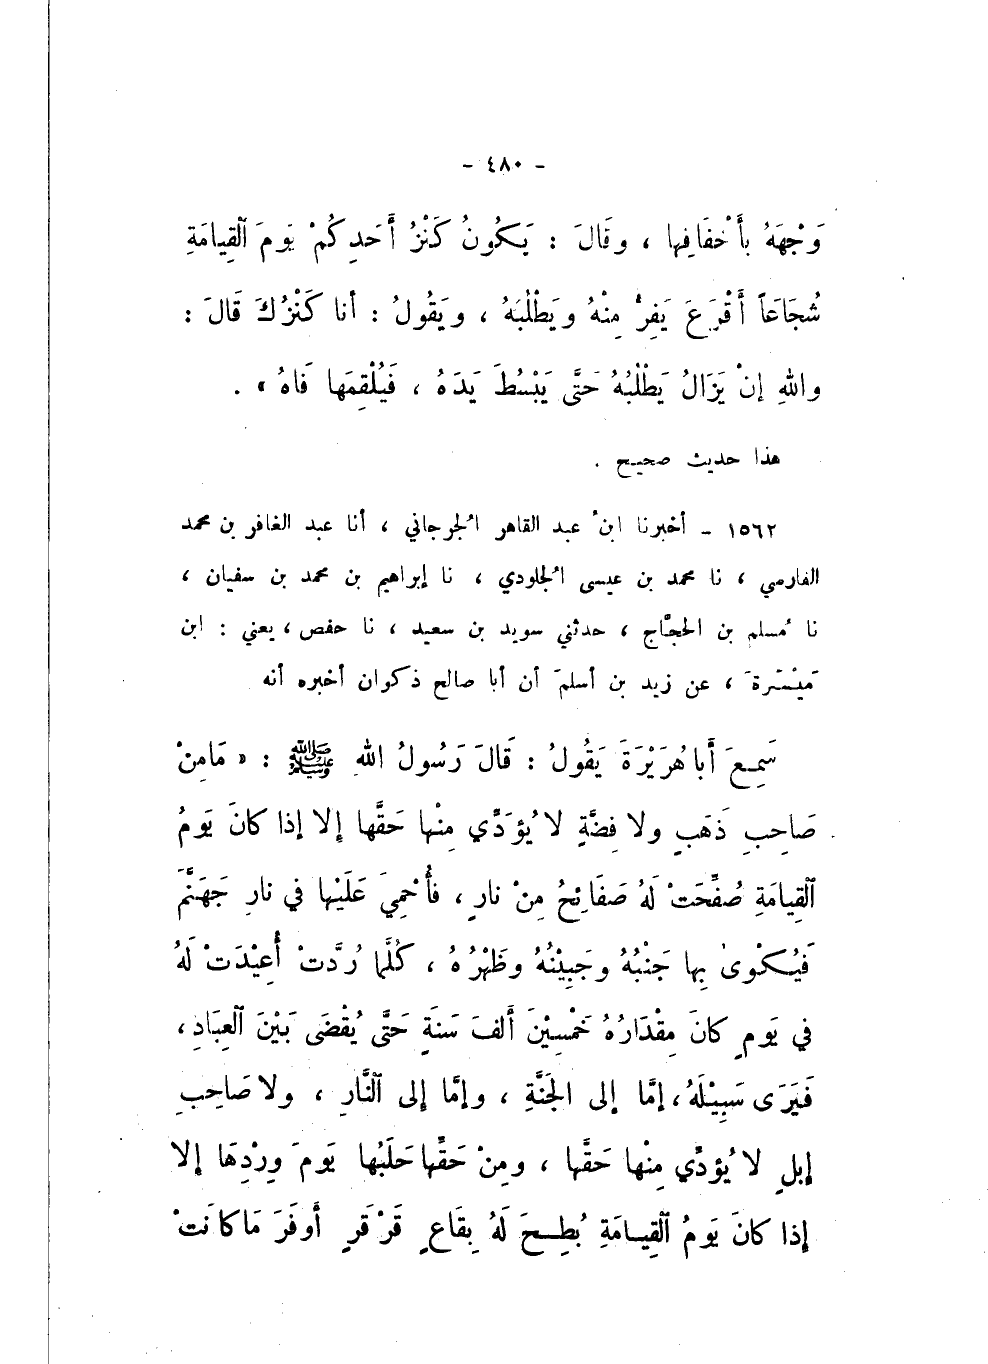 - ٤٨٠ -
وَجْهَهُ بِأَخْفَافِها ، وقَالَ : يَكُونُ كَنْزُ أَحَدِكُمْ يَومَ ٱلقِيامَةِ
شُجَاعَاً أَقْرَعَ يَفِرُّ مِنْهُ ويَطْلُبَهُ ، ويَقُولُ : أنا كَنْزُكَ قَالَ :
واللهِ إنْ يَزَالُ يَطْلُبُهُ حَتَّى يَبْسُطَ يَدَهُ ، فَيُلْقِمَها فَاهُ » .
هذا حديث صحيح .
١٥٦٢ – أخبرنا ابنُ عبد القاهر الجُرجاني ، أنا عبد الغافر بن محمد
الفارسي ، نا محمد بن عيسى الجُلودي ، نا إبراهيم بن محمد بن سفيان ،
نا مُسلم بن الحجَّاج ، حدثني سويد بن سعيد ، نا حفص ، يعني : ابن
مَيْسَرةَ ، عن زيد بن أسلمَ أن أبا صالح ذكوان أخبره أنه
سَمِعَ أَبا هُرَيْرَةَ يَقُولُ : قَالَ رَسُولُ اللهِ ﷺ : « مَامِنْ
صَاحِبِ ذَهَبٍ ولا فِضَّةٍ لا يُؤَدِّي مِنْها حَقَّها إلا إذا كانَ يَومُ
ٱلقِيامَةِ صُفِّحَتْ لَهُ صَفَائِحُ مِنْ نارٍ ، فأُحْمِيَ عَلَيْها في نارِ جَهَنَّمَ
فَيُكْوىٰ بِها جَنْبُهُ وجَبِيْنُهُ وظَهْرُهُ ، كُلَّما رُدَّتْ أُعِيْدَتْ لَهُ
في يَومٍ كانَ مِقْدَارُهُ خَمْسِيْنَ أَلفَ سَنَةٍ حَتَّى يُقْضَى بَيْنَ ٱلعِبَادِ ،
فَيَرَى سَبِيْلَهُ ، إمَّا إلى الجَنَّةِ ، وإمَّا إلى ٱلنَّارِ ، ولا صَاحِبِ
إبلٍ لا يُؤدِّي مِنْها حَقَّها ، ومِنْ حَقِّها حَلَبُها يَومَ وِرْدِهَا إلا
إذا كانَ يَومُ ٱلقِيامَةِ بُطِحَ لَهُ بِقَاعٍ قَرْقَرٍ أَوفَرَ مَا كَانَتْ